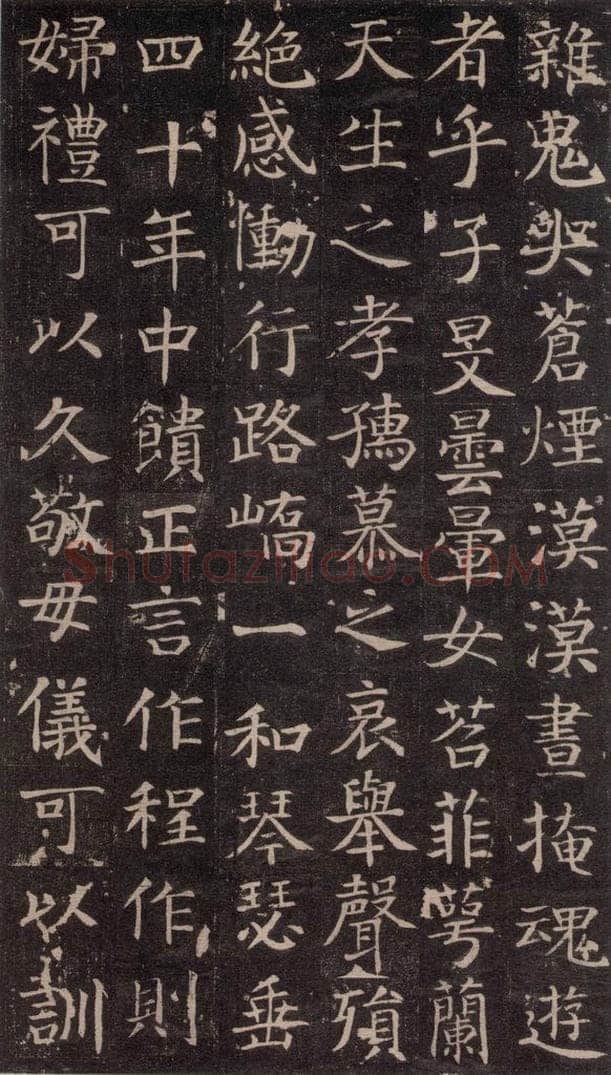 雜鬼哭蒼煙漠漠晝掩魂遊
者乎子旻曇暈女苕菲萼蘭
天生之孝孺慕之哀舉聲殞
絶感慟行路嶠一和琴瑟垂
四十年中饋正言作程作則
婦禮可以久敬母儀可以訓
Shufaziliao.COM